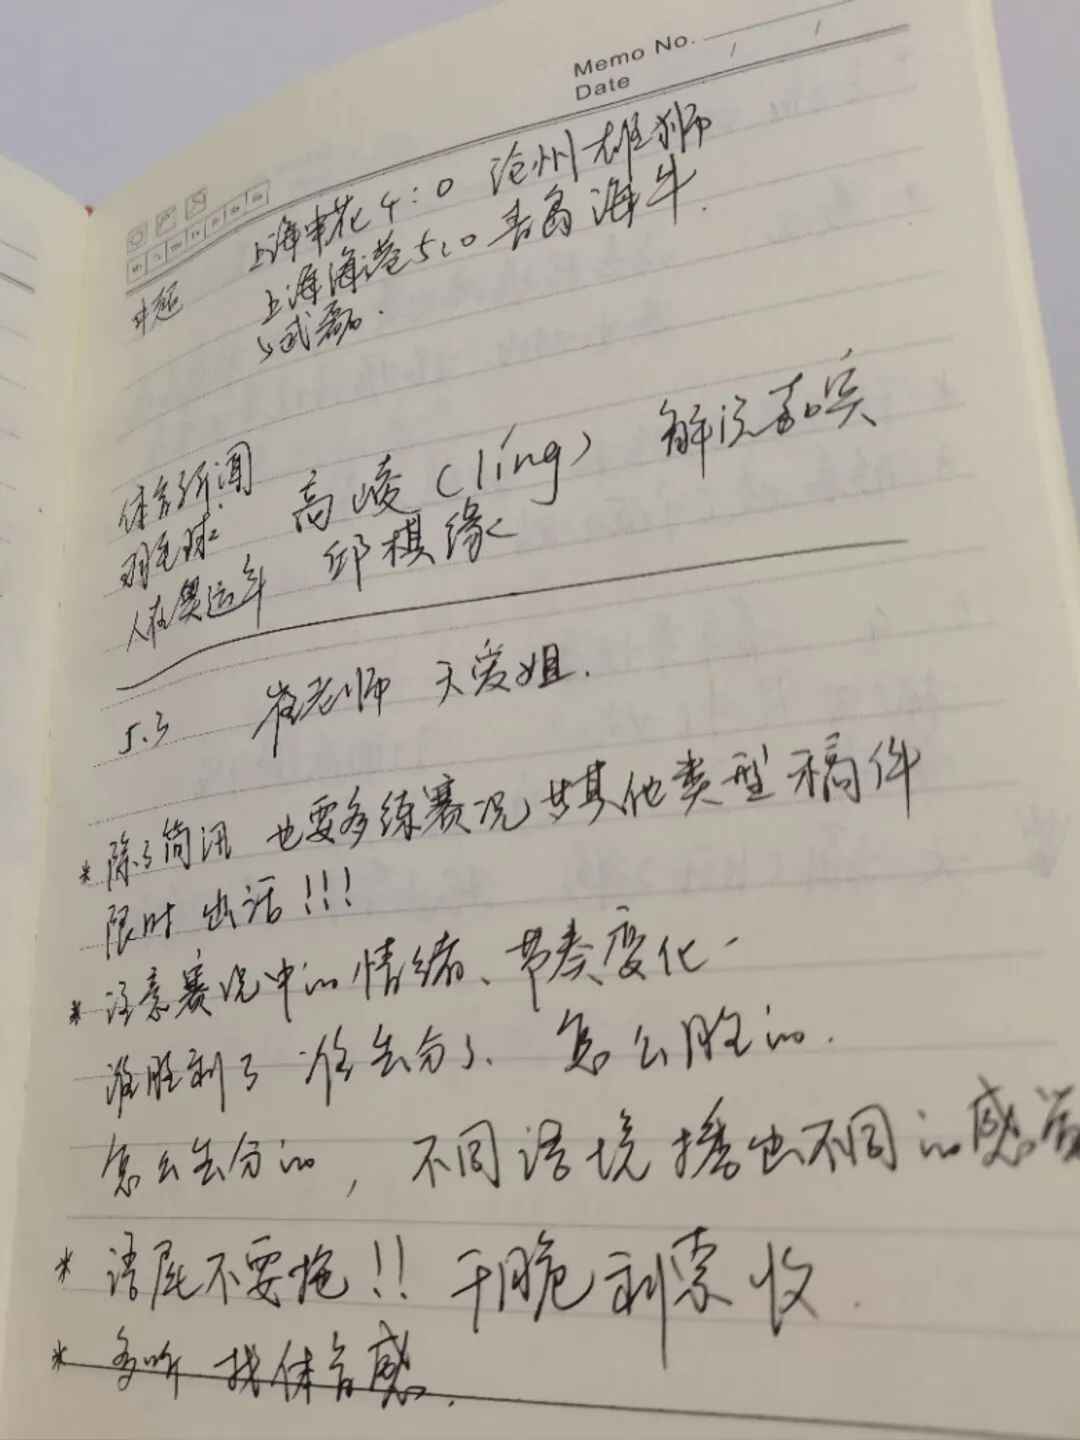 Memo No.
Date / /
中超 上海申花 4:0 沧州雄狮
上海海港 5:0 青岛海牛.
武磊.
体育新闻 高崚(líng) 解说嘉宾
羽毛球
人在奥运年 邱棋缘
5.3 崔老师 天爱姐.
* 除了简讯 也要多练赛况 其他类型稿件
限时出活!!!
* 注意赛况中的情绪、节奏变化
谁胜利了 谁丢分了、怎么胜的.
怎么丢分的, 不同语境播出不同的感觉
* 语尾不要拖!! 干脆利索收.
* 多听 找体育感.